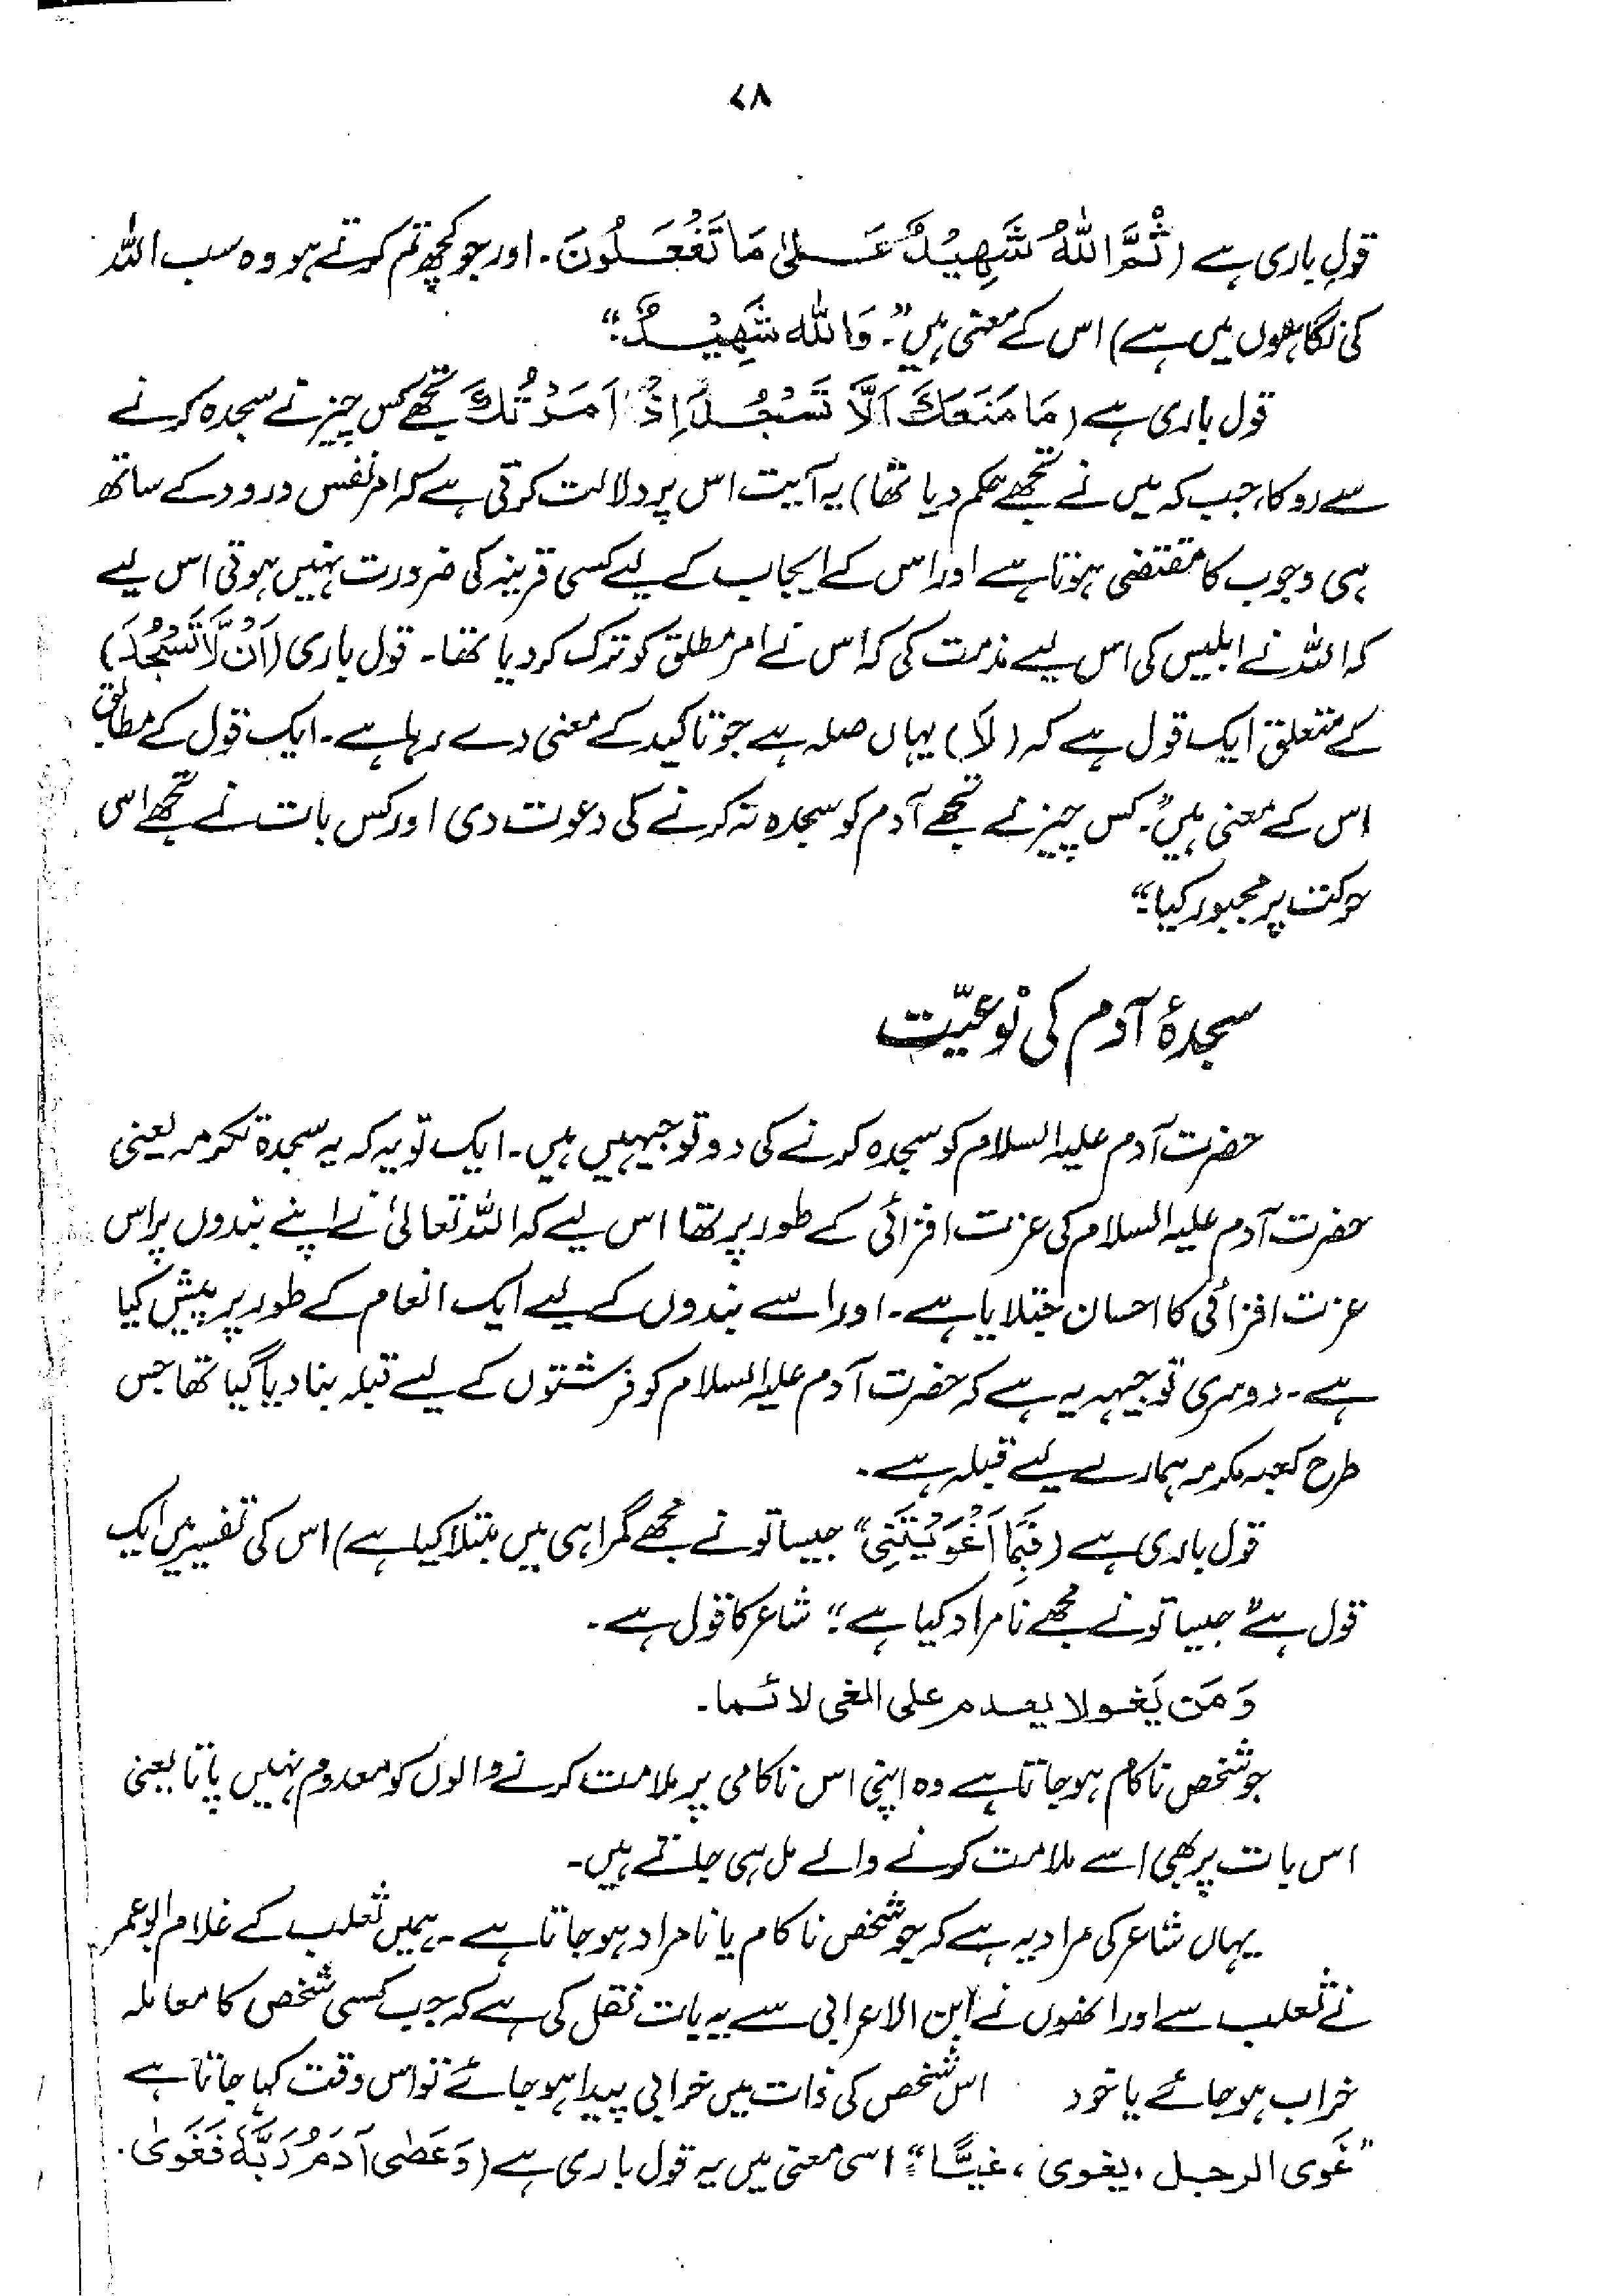 ۷۸
قولِ باری ہے (ثُمَّ اللّٰہُ شَھِیْدٌ عَلٰی مَا تَفْعَلُونَ۔ اور جو کچھ تم کرتے ہو وہ سب اللہ
کی نگاہوں میں ہے) اس کے معنی ہیں "۔ وَاللّٰہ شَھِیْدٌ۔"
قول باری ہے (مَا مَنَعَكَ اَلَّا تَسْجُدَ اِذْ اَمَرْتُكَ تجھے کس چیز نے سجدہ کرنے
سے روکا، جب کہ میں نے تجھے حکم دیا تھا) یہ آیت اس پر دلالت کرتی ہے کہ امر نفس ورود کے ساتھ
ہی وجوب کا مقتضی ہوتا ہے اور اس کے ایجاب کے لیے کسی قرینہ کی ضرورت نہیں ہوتی اس لیے
کہ اللہ نے ابلیس کی اس لیے مذمت کی کہ اس نے امر مطلق کو ترک کر دیا تھا۔ قول باری (اَنْ لَّا تَسْجُدَ)
کے متعلق ایک قول ہے کہ (لَا) یہاں صلہ ہے جو تاکید کے معنی دے رہا ہے۔ ایک قول کے مطابق
اس کے معنی ہیں "۔ کس چیز نے تجھے آدم کو سجدہ نہ کرنے کی دعوت دی اور کس بات نے تجھے اس
حرکت پر مجبور کیا۔"
سجدۂ آدم کی نوعیّت
حضرت آدم علیہ السلام کو سجدہ کرنے کی دو توجیہیں ہیں۔ ایک تو یہ کہ یہ سجدۃ تکرمہ یعنی
حضرت آدم علیہ السلام کی عزت افزائی کے طور پر تھا اس لیے کہ اللہ تعالیٰ نے اپنے بندوں پر اس
عزت افزائی کا احسان جتلایا ہے۔ اور اسے بندوں کے لیے ایک انعام کے طور پر پیش کیا
ہے۔ دوسری توجیہہ یہ ہے کہ حضرت آدم علیہ السلام کو فرشتوں کے لیے قبلہ بنا دیا گیا تھا جس
طرح کعبہ مکرمہ ہمارے لیے قبلہ ہے۔
قول باری ہے (فَبِمَا اَغْوَیْتَنِی" جیسا تو نے مجھے گمراہی میں مبتلا کیا ہے) اس کی تفسیر میں ایک
قول ہے "جیسا تو نے مجھے نامراد کیا ہے" شاعر کا قول ہے۔
وَمَن یَغو لا یعدم علی الغی لائما۔
جو شخص ناکام ہو جاتا ہے وہ اپنی اس ناکامی پر ملامت کرنے والوں کو معدوم نہیں پاتا یعنی
اس بات پر بھی اسے ملامت کرنے والے مل ہی جاتے ہیں۔
یہاں شاعر کی مراد یہ ہے کہ جو شخص ناکام یا نامراد ہو جاتا ہے۔ ہمیں ثعلب کے غلام ابوعمر
نے ثعلب سے اور انھوں نے ابن الاعرابی سے یہ بات نقل کی ہے کہ جب کسی شخص کا معاملہ
خراب ہو جائے یا خود اس شخص کی ذات میں خرابی پیدا ہو جائے تو اس وقت کہا جاتا ہے
"غَوی الرجل، یغوی، غیًّا" اسی معنی میں یہ قول باری ہے (وَعَصٰی آدَمُ رَبَّہٗ فَغَوٰی۔